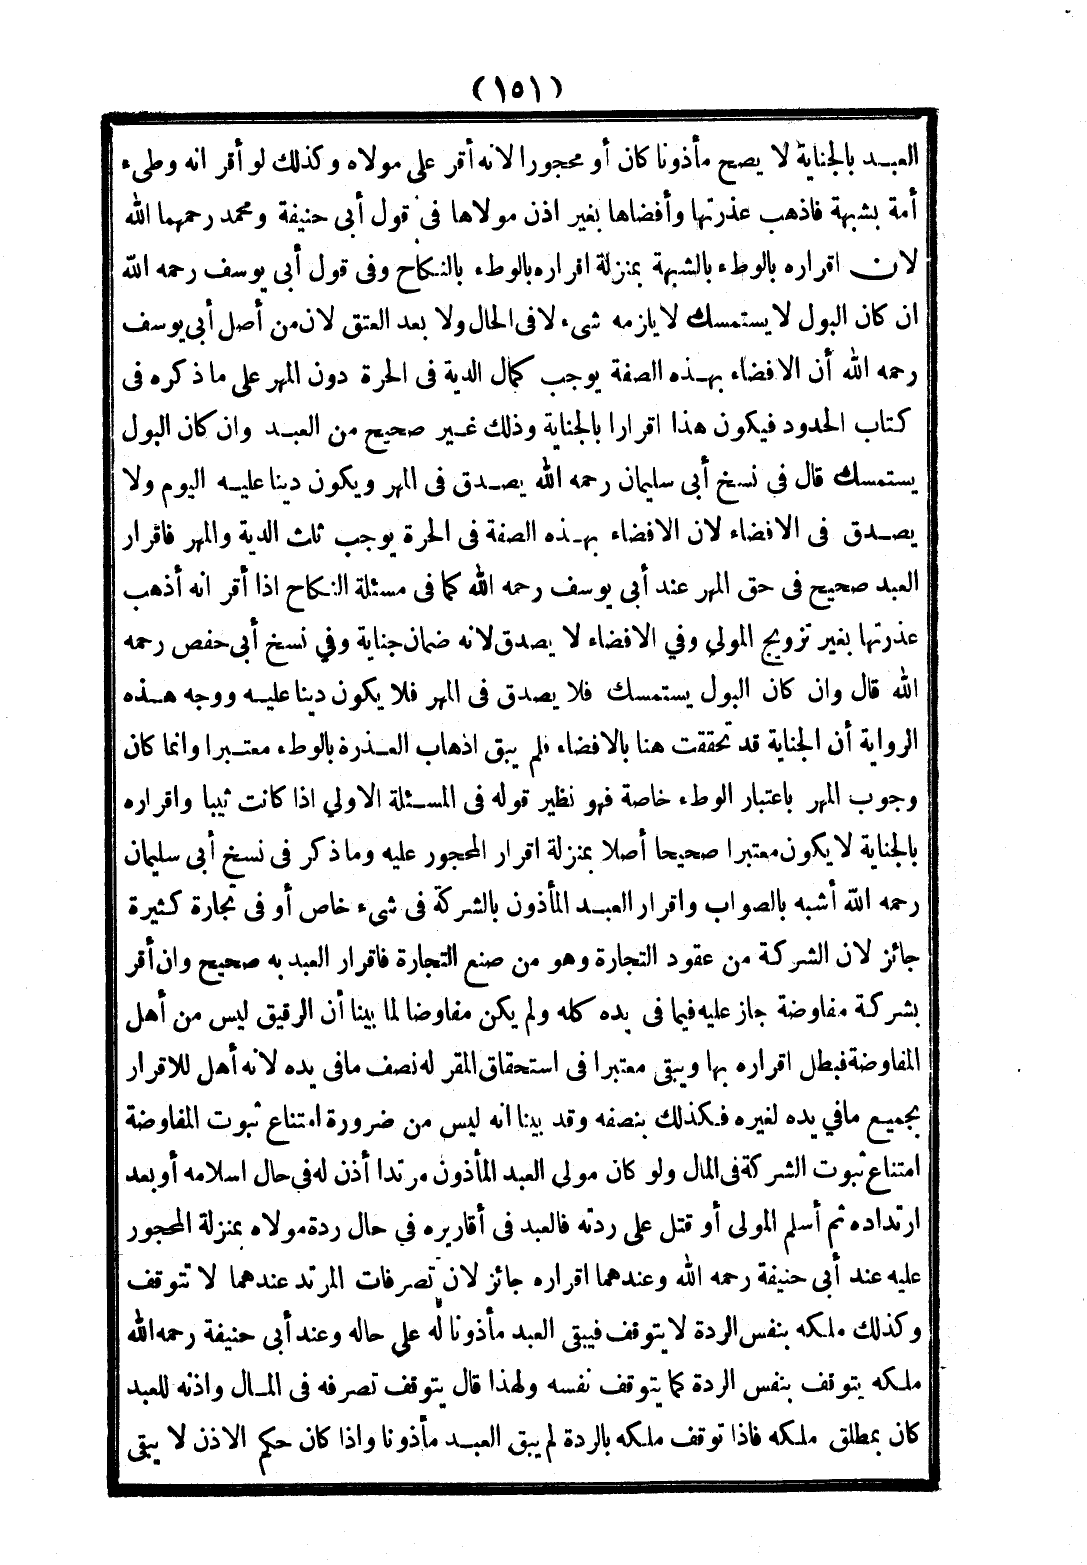 (١٥١)
العبد بالجناية لا يصح مأذونا كان أو محجورا لانه أقر على مولاه وكذلك لو أقر انه وطىء
أمة بشبهة فاذهب عذرتها وأفضاها بغير اذن مولاها فى قول أبى حنيفة ومحمد رحمهما الله
لان اقراره بالوطء بالشبهة بمنزلة اقراره بالوطء بالنكاح وفى قول أبى يوسف رحمه الله
ان كان البول لا يستمسك لا يلزمه شىء لا فى الحال ولا بعد العتق لان من أصل أبى يوسف
رحمه الله أن الافضاء بهذه الصفة يوجب كمال الدية فى الحرة دون المهر على ما ذكره فى
كتاب الحدود فيكون هذا اقرارا بالجناية وذلك غير صحيح من العبد وان كان البول
يستمسك قال فى نسخ أبى سليمان رحمه الله يصدق فى المهر ويكون دينا عليه اليوم ولا
يصدق فى الافضاء لان الافضاء بهذه الصفة فى الحرة يوجب ثلث الدية والمهر فاقرار
العبد صحيح فى حق المهر عند أبى يوسف رحمه الله كما فى مسئلة النكاح اذا أقر انه أذهب
عذرتها بغير تزويج المولى وفي الافضاء لا يصدق لانه ضمان جناية وفي نسخ أبى حفص رحمه
الله قال وان كان البول يستمسك فلا يصدق فى المهر فلا يكون دينا عليه ووجه هذه
الرواية أن الجناية قد تحققت هنا بالافضاء فلم يبق اذهاب العذرة بالوطء معتبرا وانما كان
وجوب المهر باعتبار الوطء خاصة فهو نظير قوله فى المسئلة الاولي اذا كانت ثيبا واقراره
بالجناية لا يكون معتبرا صحيحا أصلا بمنزلة اقرار المحجور عليه وما ذكر فى نسخ أبى سليمان
رحمه الله أشبه بالصواب واقرار العبد المأذون بالشركة فى شىء خاص أو فى تجارة كثيرة
جائز لان الشركة من عقود التجارة وهو من صنع التجارة فاقرار العبد به صحيح وان أقر
بشركة مفاوضة جاز عليه فيما فى يده كله ولم يكن مفاوضا لما بينا أن الرقيق ليس من أهل
المفاوضة فبطل اقراره بها ويبقى معتبرا فى استحقاق المقر له نصف مافى يده لانه أهل للاقرار
بجميع مافي يده لغيره فكذلك بنصفه وقد بينا انه ليس من ضرورة امتناع ثبوت المفاوضة
امتناع ثبوت الشركة فى المال ولو كان مولى العبد المأذون مرتدا أذن له في حال اسلامه أو بعد
ارتداده ثم أسلم المولى أو قتل على ردته فالعبد فى أقاريره في حال ردة مولاه بمنزلة المحجور
عليه عند أبى حنيفة رحمه الله وعندهما اقراره جائز لان تصرفات المرتد عندهما لا تتوقف
وكذلك ملكه بنفس الردة لا يتوقف فيبقى العبد مأذونا له على حاله وعند أبى حنيفة رحمه الله
ملكه يتوقف بنفس الردة كما يتوقف نفسه ولهذا قال يتوقف تصرفه فى المال واذنه للعبد
كان بمطلق ملكه فاذا توقف ملكه بالردة لم يبق العبد مأذونا واذا كان حكم الاذن لا يبقى